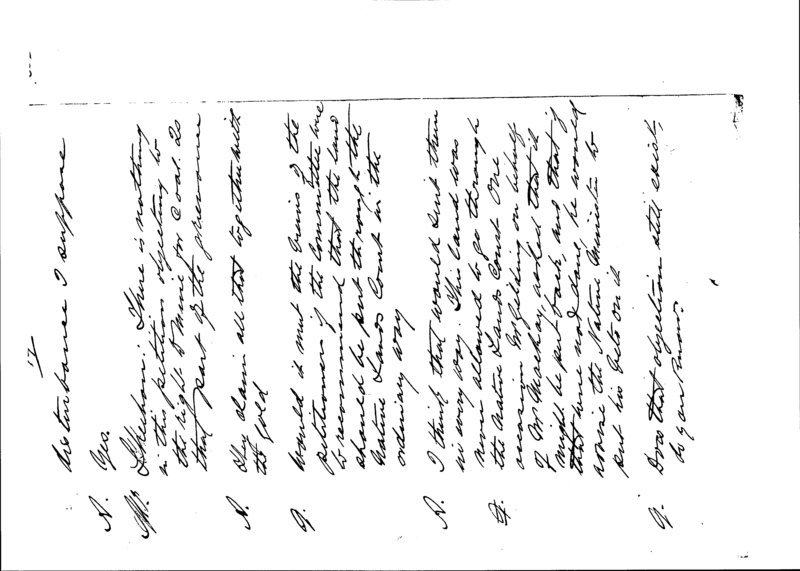 17
disturbance I suppose
A. Yes.
Mr. Sheehan: There is nothing
in this petition objecting to
the right to mine for Coal. Is
that part of the grievance
A. They claim all that together with
the gold
Q. Would it meet the views of the
petitioners if the Committee were
to recommend that the land
should be put through the
Native Lands Court in the
ordinary way
A. I think that would suit them
in every way. This land was
never allowed to go through
the Native Lands Court. One
occasion on behalf
of Mr Mackay, asked that it
might be put back, and that if
that were not done, he would
the Native Minister to
put his veto on it
Q. Does that objection still exist,
do you know.